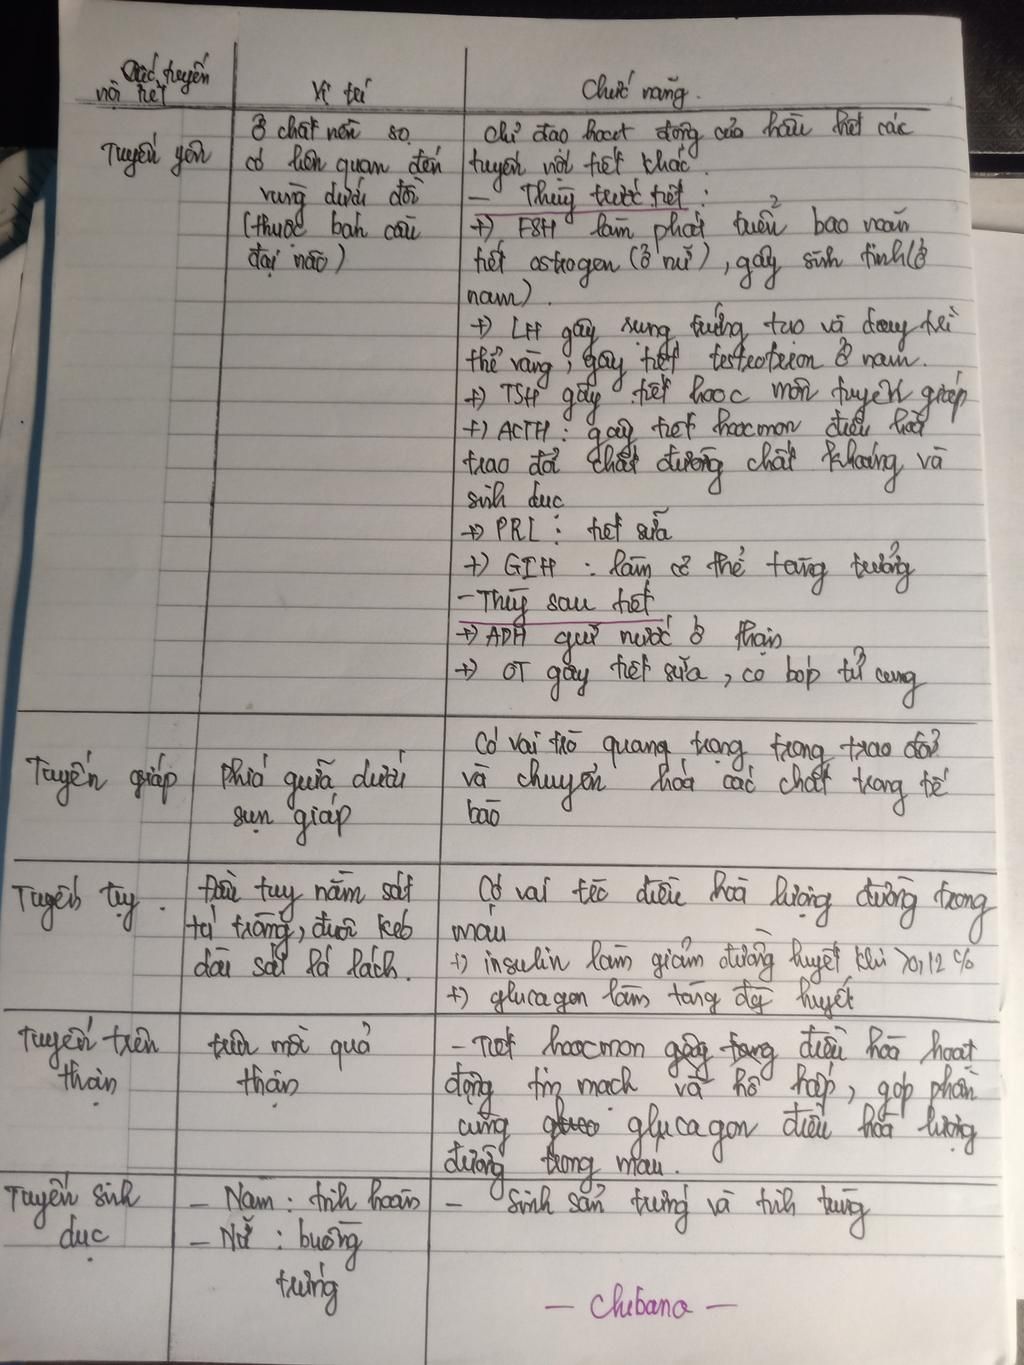 Các tuyến
nội tiết
Vị trí
Chức năng.
Tuyến yên
Ở chất nền sọ
có liên quan đến
vùng dưới đồi
(thuộc bán cầu
đại não)
Chỉ đạo hoạt động của hầu hết các
tuyến nội tiết khác.
- Thùy trước tiết :
+) FSH làm phát triển bao noãn
tiết ostrogen (ở nữ), gây sinh tinh (ở
nam).
+) LH gây rụng trứng tạo và duy trì
thể vàng, gây tiết ở nam.
+) TSH gây tiết hooc môn tuyến giáp
+) ACTH : gây tiết hoocmon điều hoà
trao đổi chất đường chất khoáng và
sinh dục
+) PRL : tiết sữa
+) GIH : làm cơ thể tăng trưởng
- Thùy sau tiết
+) ADH giữ nước ở thận
+) OT gây tiết sữa, co bóp tử cung
Tuyến giáp
phía giữa dưới
sụn giáp
Có vai trò quang trọng trong trao đổi
và chuyển hóa các chất trong tế
bào
Tuyến tụy.
Đầu tụy nằm sát
tá tràng, đuôi kéo
dài sát lá lách.
Có vai trò điều hoà lượng đường trong
máu
+) insulin làm giảm đường huyết khi >0,12 %
+) glucagon làm tăng huyết
Tuyến trên
thận
trên mỗi quả
thận
- Tiết hoocmon điều hoà hoạt
động tim mạch và hô hấp, góp phần
cùng glucagon điều hoà lượng
đường trong máu.
Tuyến sinh
dục
- Nam : tinh hoàn
- Nữ : buồng
trứng
- Sinh sản trứng và tinh trùng
- Chibana -